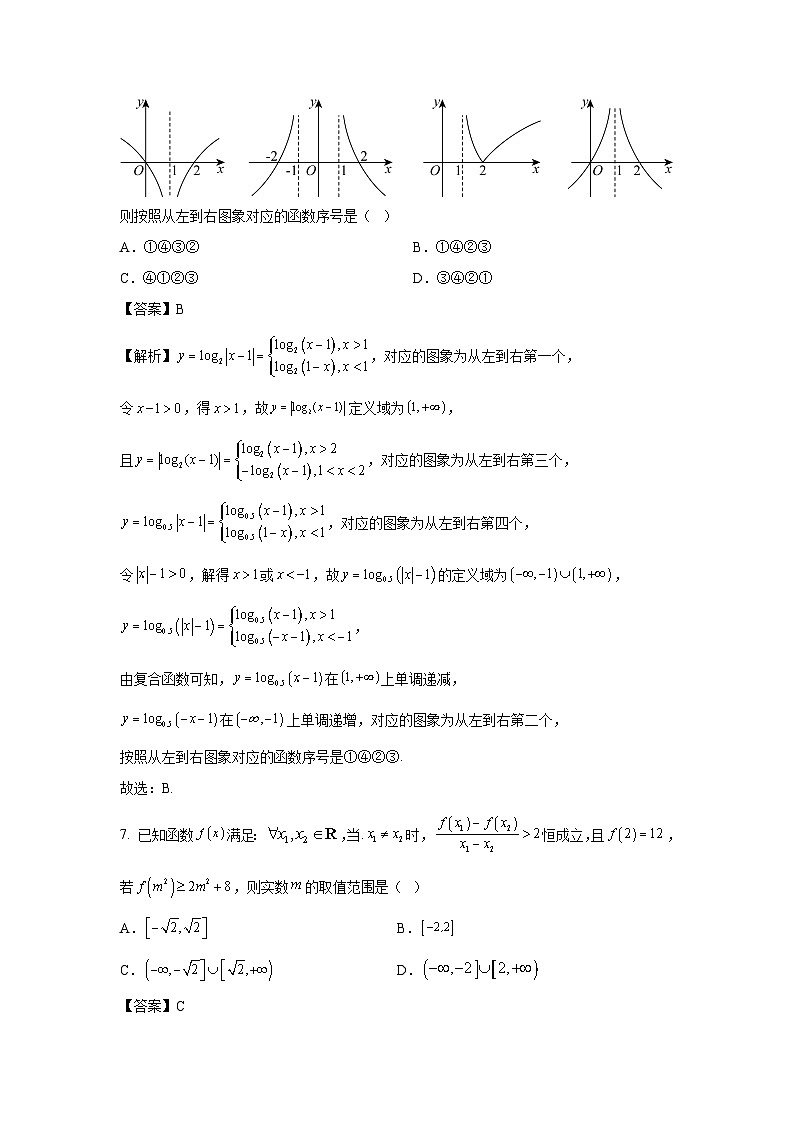 y y y y
-2 2
O 1 2 x -1 O 1 x O 1 2 x O 1 2 x
则按照从左到右图象对应的函数序号是( )
A.①④③② B.①④②③
C.④①②③ D.③④②①
【答案】B
【解析】y = log₂|x−1| = {log₂(x−1), x>1; log₂(1−x), x<1, 对应的图象为从左到右第一个,
令 x−1>0, 得 x>1, 故 y=|log₂(x−1)| 定义域为(1,+∞),
且 y=|log₂(x−1)| = {log₂(x−1), x>2; −log₂(x−1), 1<x<2, 对应的图象为从左到右第三个,
y = log₀.₅|x−1| = {log₀.₅(x−1), x>1; log₀.₅(1−x), x<1, 对应的图象为从左到右第四个,
令|x|−1>0, 解得 x>1 或 x<−1, 故 y = log₀.₅(|x|−1) 的定义域为(−∞,−1)∪(1,+∞),
y = log₀.₅(|x|−1) = {log₀.₅(x−1), x>1; log₀.₅(−x−1), x<−1,
由复合函数可知, y = log₀.₅(x−1) 在(1,+∞)上单调递减,
y = log₀.₅(−x−1) 在(−∞,−1)上单调递增, 对应的图象为从左到右第二个,
按照从左到右图象对应的函数序号是①④②③.
故选: B.
7. 已知函数 f(x) 满足: ∀x₁,x₂∈R, 当. x₁≠x₂ 时, (f(x₁)−f(x₂))/(x₁−x₂) > 2 恒成立, 且 f(2)=12,
若 f(m²) ≥ 2m²+8, 则实数 m 的取值范围是( )
A.[−√2,√2] B.[−2,2]
C.(−∞,−√2]∪[√2,+∞) D.(−∞,−2]∪[2,+∞)
【答案】C